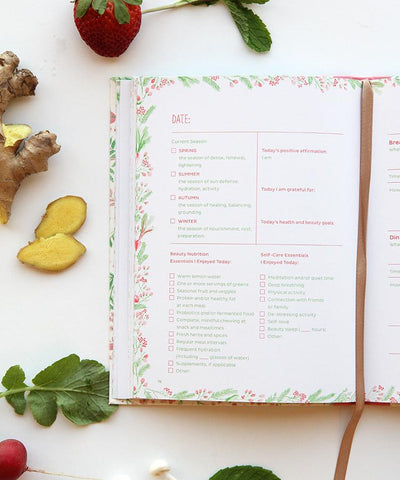 DATE:
Current Season:
SPRING
the season of detox, renewal,
lightening
SUMMER
the season of sun defense,
hydration, activity
AUTUMN
the season of healing, balancing,
grounding
WINTER
the season of nourishment, rest,
preparation
Today's positive affirmation:
I am
Today I am grateful for:
Today's health and beauty goals:
Beauty Nutrition
Essentials I Enjoyed Today:
Warm lemon water
One or more servings of greens
Seasonal fruit and veggies
Protein and/or healthy fat
at each meal
Probiotics and/or fermented food
Complete, mindful chewing at
snack and mealtimes
Fresh herbs and spices
Regular meal intervals
Frequent hydration
(including ___ glasses of water)
Supplements, if applicable
Other:
Self-Care Essentials
I Enjoyed Today:
Meditation and/or quiet time
Deep breathing
Physical activity
Connection with friends
or family
De-stressing activity
Self-love
Beauty sleep (___ hours)
Other: